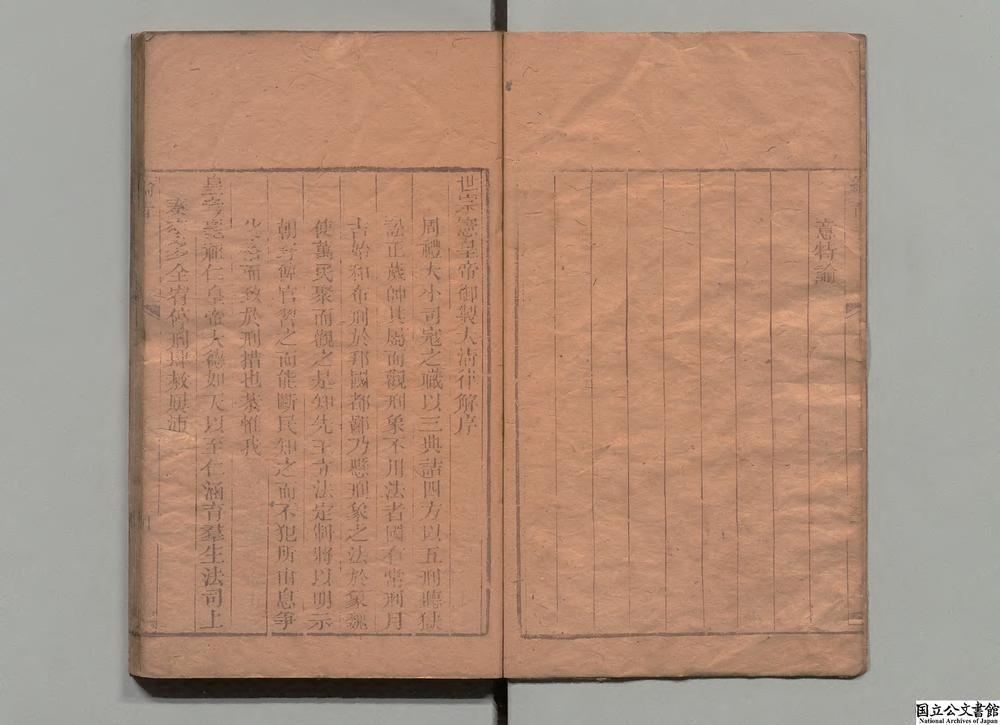 意特諭
世宗憲皇帝御製大清律解序
周禮大小司寇之職以三典詰四方以五刑聽獄
訟正歲帥其屬而觀刑象不用法者國有常刑月
吉始和布刑於邦國都鄙乃懸刑象之法於象魏
使萬民聚而觀之是知先王立法定制將以明示
朝野俾官習之而能斷民知之而不犯所由息爭
化俗而致於刑措也恭惟我
皇考聖祖仁皇帝大德如天以至仁涵育羣生法司上
奏多全宥停刑肆赦屢沛
国立公文書館
National Archives of Japan